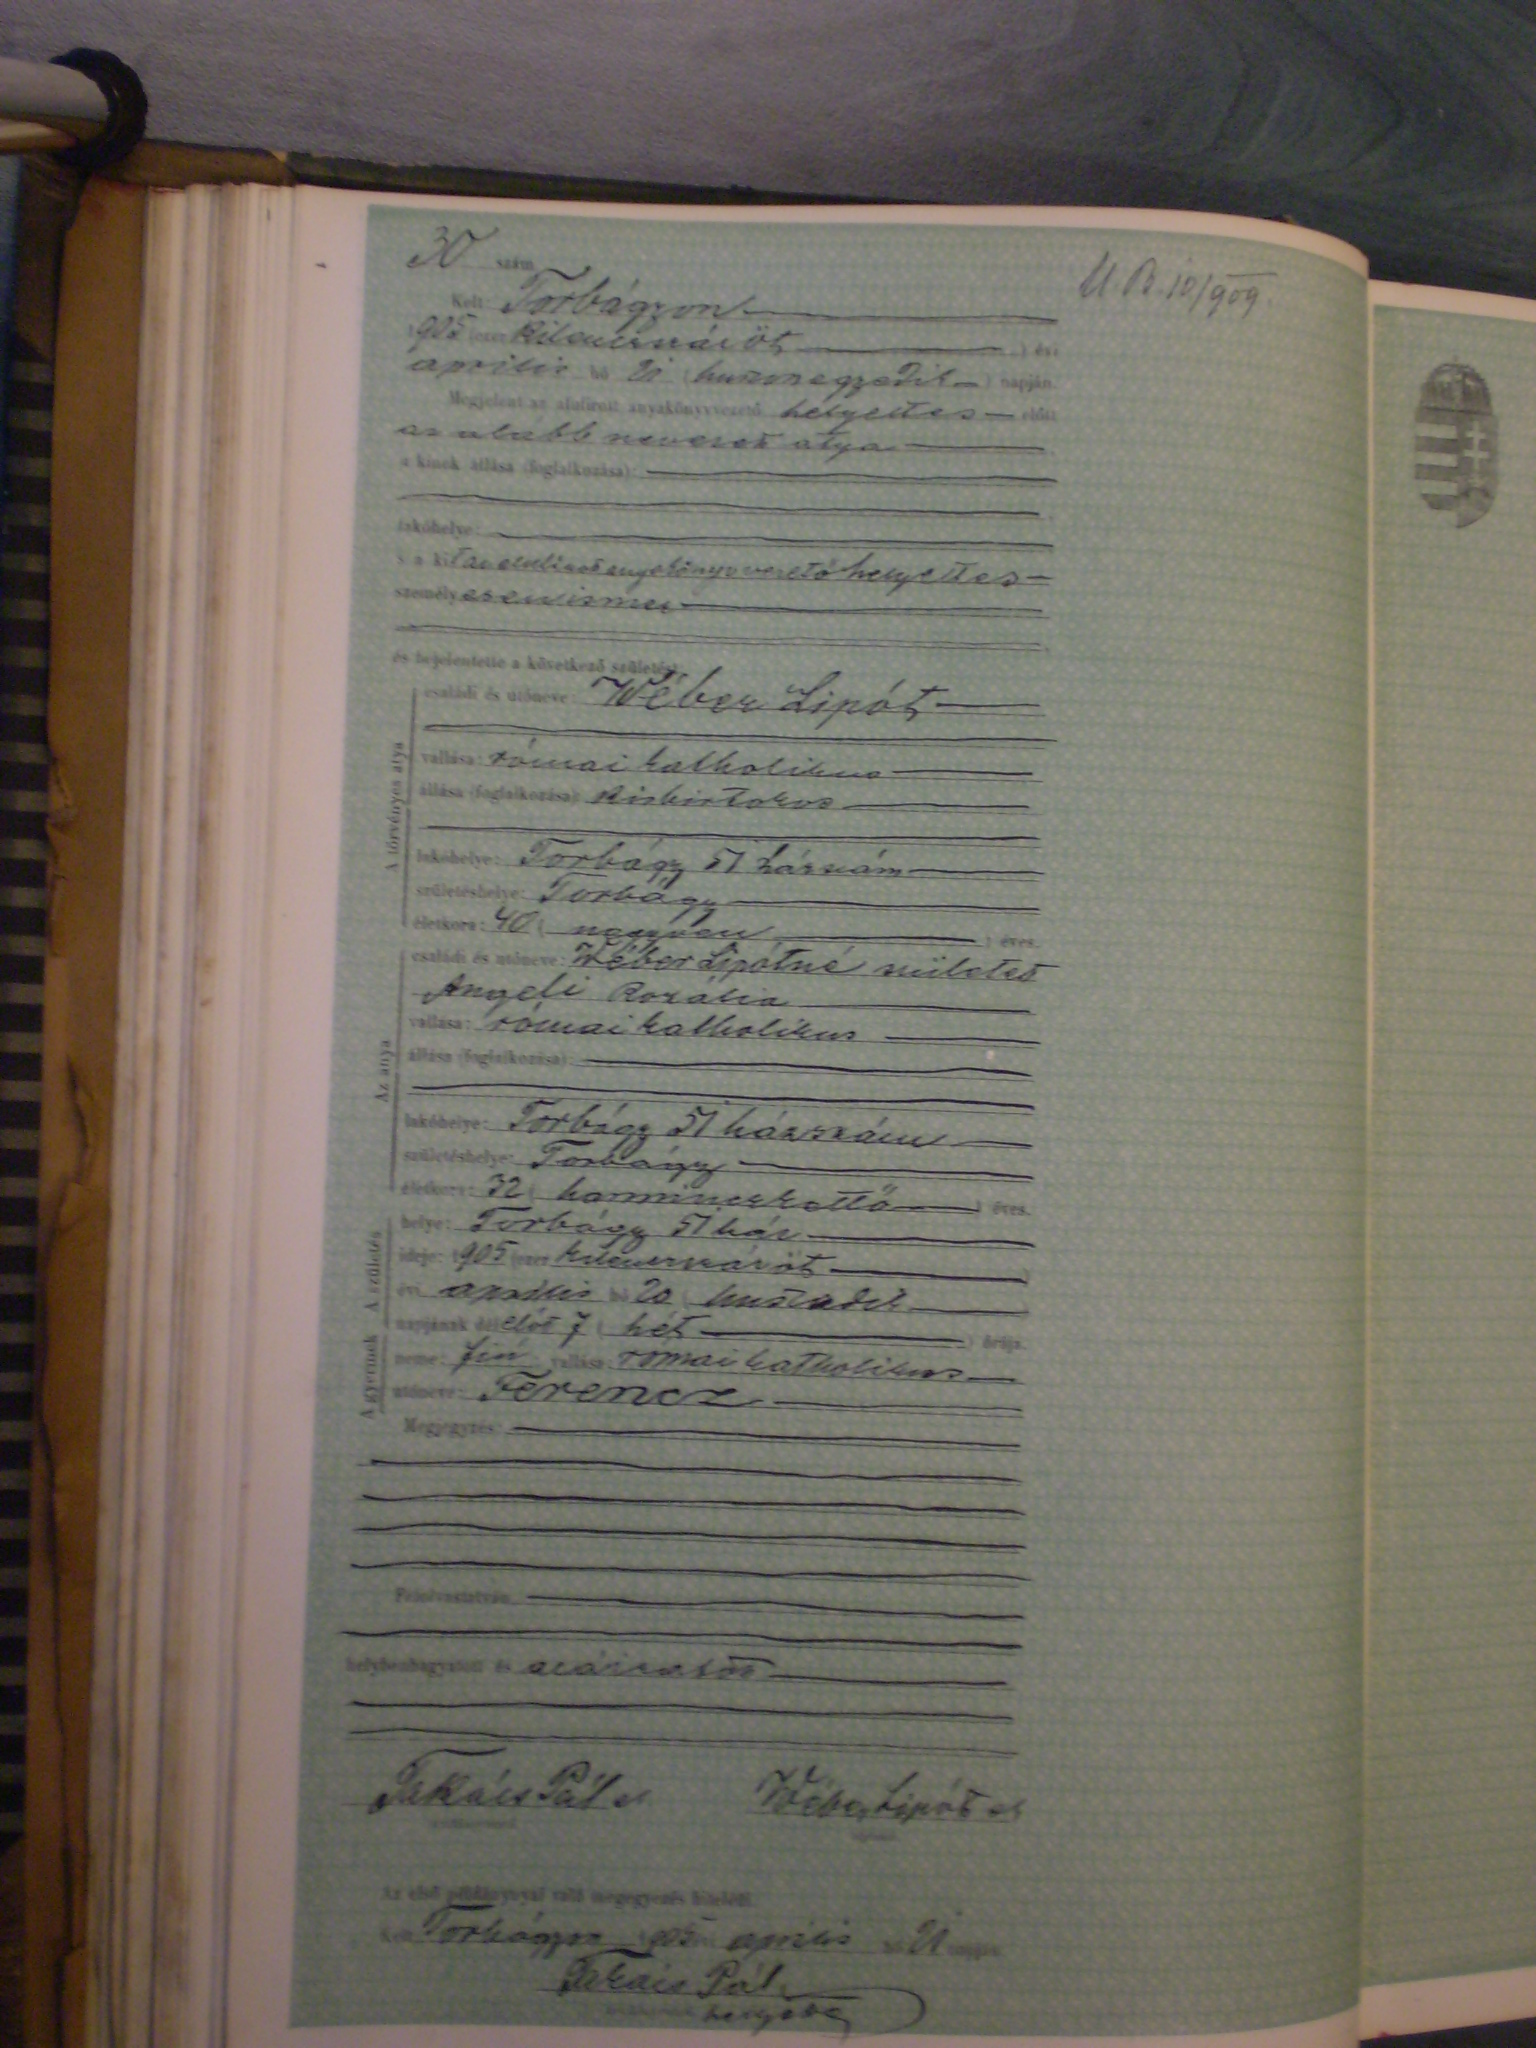 30 szám
U. B. 10/909.
Kelt: Torbágyon
1905 (ezer kilenczszázöt) évi
április hó 21 (huszonegyedik) napján.
Megjelent az alulirott anyakönyvvezető helyettes előtt
az alább nevezett atya
a kinek állása (foglalkozása):
lakóhelye:
s a kit az alulirott anyakönyvvezető helyettes
személyesen ismer
és bejelentette a következő születést:
A törvényes atya
családi és utóneve: Wéber Lipót
vallása: római katholikus
állása (foglalkozása): kisbirtokos
lakóhelye: Torbágy 51 házszám
születéshelye: Torbágy
életkora: 40 (negyven) éves.
Az anya
családi és utóneve: Wéber Lipótné született
Angeli Rozália
vallása: római katholikus
állása (foglalkozása):
lakóhelye: Torbágy 51 házszám
születéshelye: Torbágy
életkora: 32 (harminczkettő) éves.
A születés
helye: Torbágy 51 ház
ideje: 1905 (ezer kilenczszázöt)
évi április hó 20 (huszadik
napjának délelőt 7 (hét) órája.
A gyermek
neme: fiú vallása: római katholikus
utóneve: Ferencz
Megjegyzés:
Felolvastatván,
helybenhagyatott és aláiratott
Takács Pál sk Wéber Lipót sk
Az első példánynyal való megegyezés hiteléül
Kelt Torbágyon 1905 április hó 21
Takács Pál